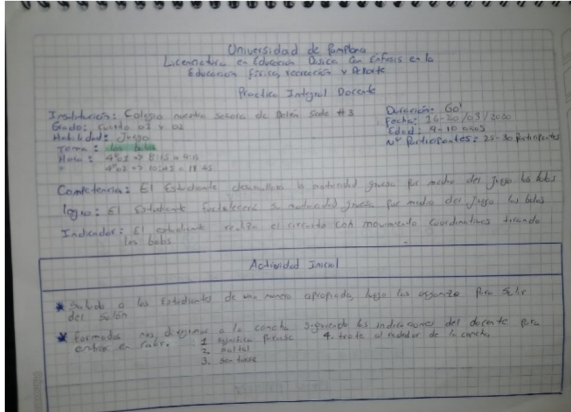 Universidad de Pamplona
Licenciatura en Educación Básica Con énfasis en la
Educación física, recreación y deporte
Practica Integral Docente
Institución: Colegio nuestra señora de Belén Sede #3
Grado: cuarto 01 y 02
Habilidad: Juego
Tema: los bolos
Hora:
Duración: 60'
Fecha: 16-20/03/2020
Edad: 9-10 años
N° Participantes: 25-30 Participantes
Competencia: El Estudiante desarrollara la motricidad gruesa por medio del Juego los bolos
logro: El Estudiante fortalecerá su motricidad gruesa por medio del Juego los bolos
Indicador: El estudiante realiza el circuito con movimientos coordinativos tirando
los bolos
Actividad Inicial
Saludo a los Estudiantes de una manera apropiada, luego los organizo para salir
del salón
Formados nos dirigimos a la cancha siguiendo las indicaciones del docente para
entrar en calor.
1.
2. saltar
3. sentarse
4. trote al rededor de la cancha